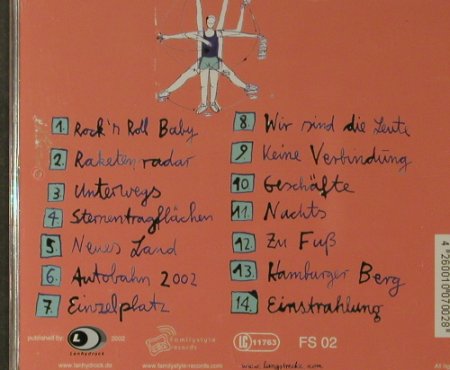 1. Rock'n Roll Baby
2. Raketenradar
3 Unterwegs
4. Sternentragflächen
5 Neues Land
6. Autobahn 2002
7. Einzelplatz
8. Wir sind die Leute
9 Keine Verbindung
10 Geschäfte
11. Nachts
12. Zu Fuß
13. Hamburger Berg
14. Einstrahlung
4 260010 070028
published by Lanhydrock 2002
familystyle records
LC 11763
FS 02
www.lanhydrock.de
www.familystyle-records.com
All